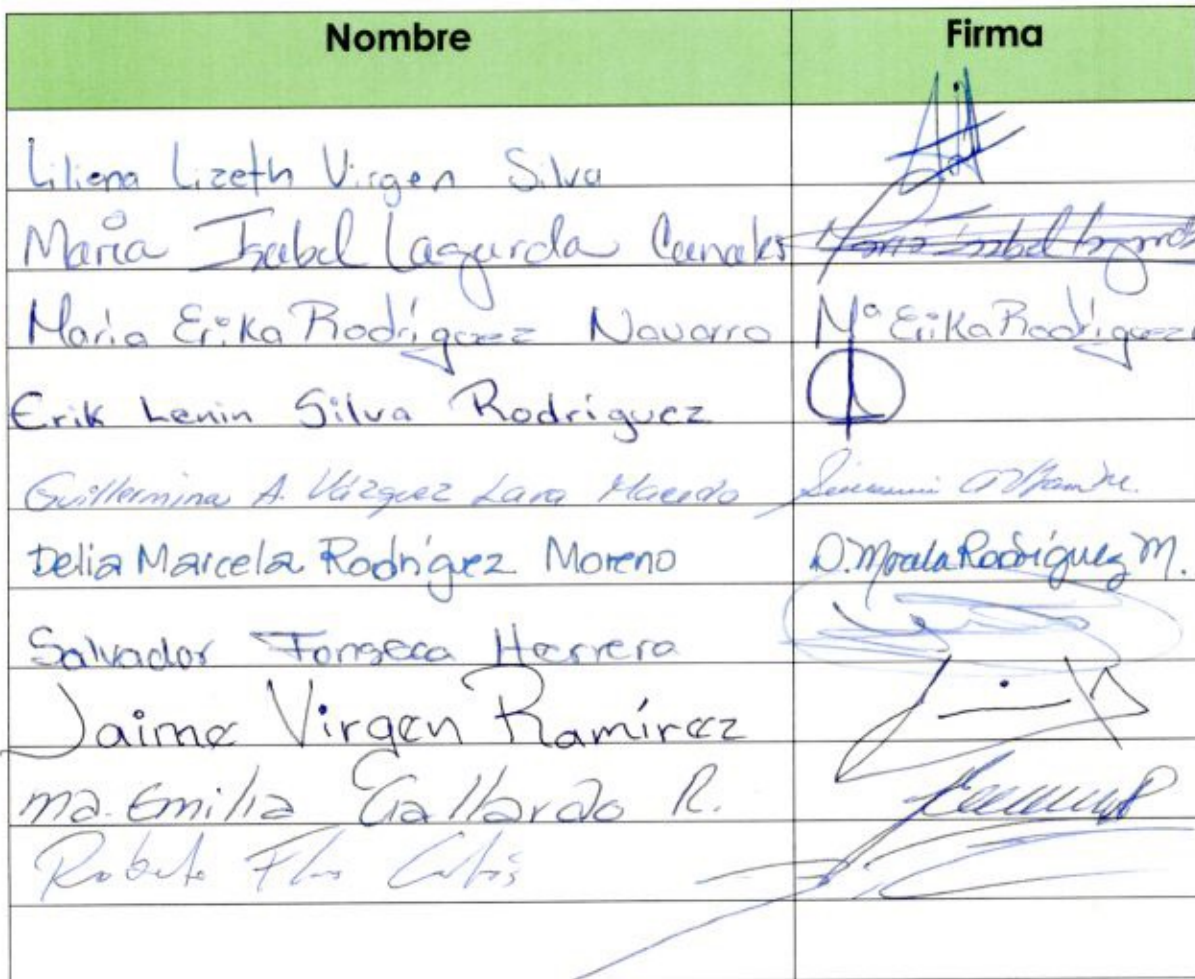 Nombre Firma
Liliana Lizeth Virgen Silva
Maria Isabel Lagarda Canales Maria Isabel Lagarda
Maria Erika Rodríguez Navarro Mª Erika Rodríguez
Erik Lenin Silva Rodríguez
Guillermina A. Vázquez Lara Macedo
Delia Marcela Rodríguez Moreno D. Marcela Rodríguez M.
Salvador Fonseca Herrera
Jaime Virgen Ramírez
Ma. Emilia Gallardo R.
Roberto